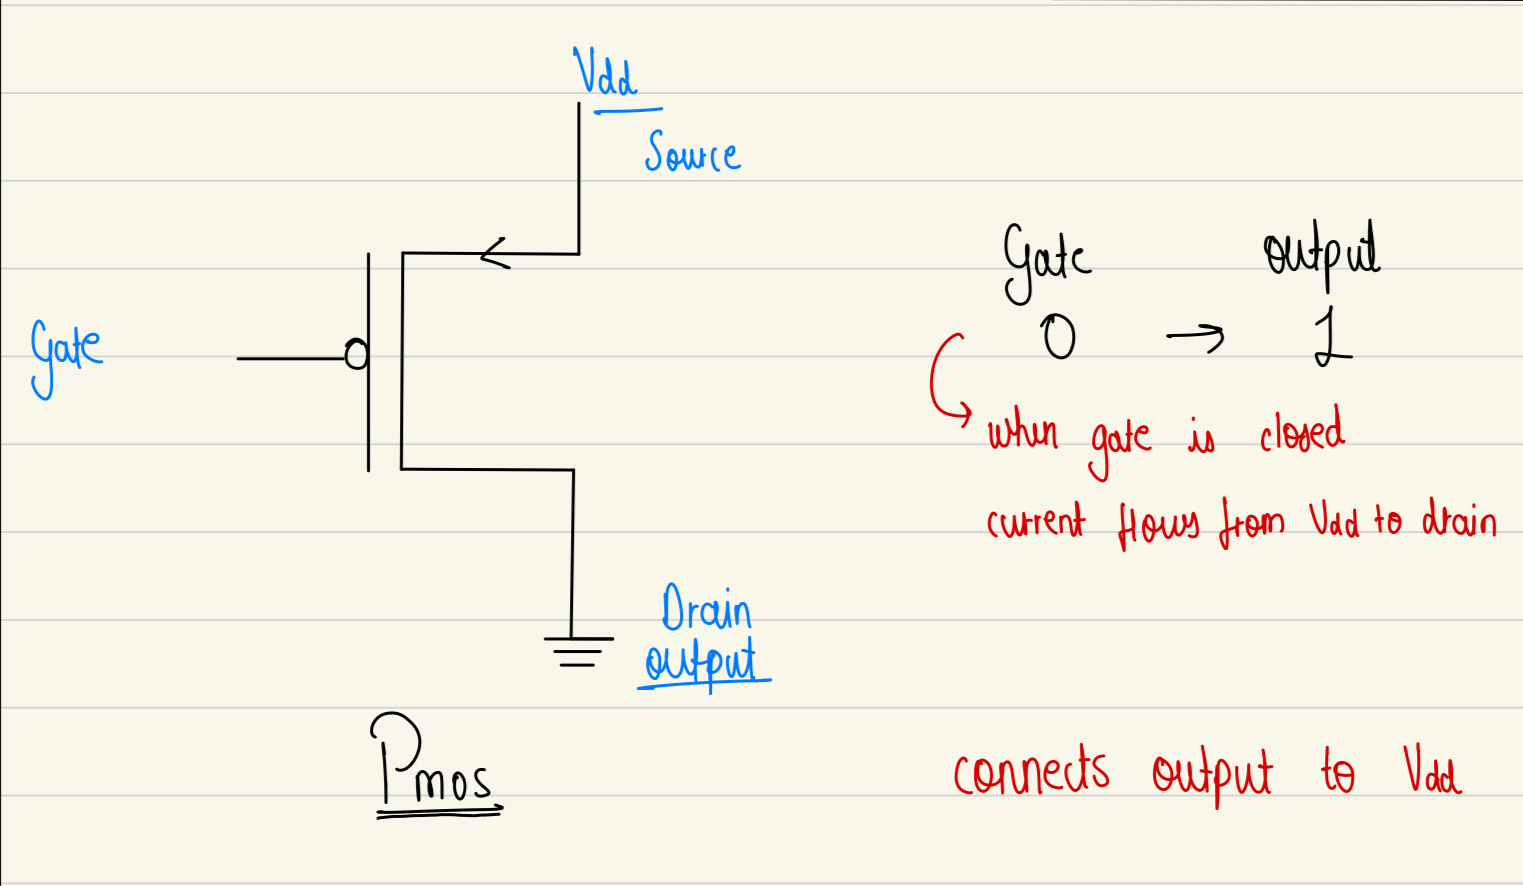 Vdd
Source
Gate
Drain
output
Pmos
Gate output
0 → 1
when gate is closed
current flows from Vdd to drain
connects output to Vdd